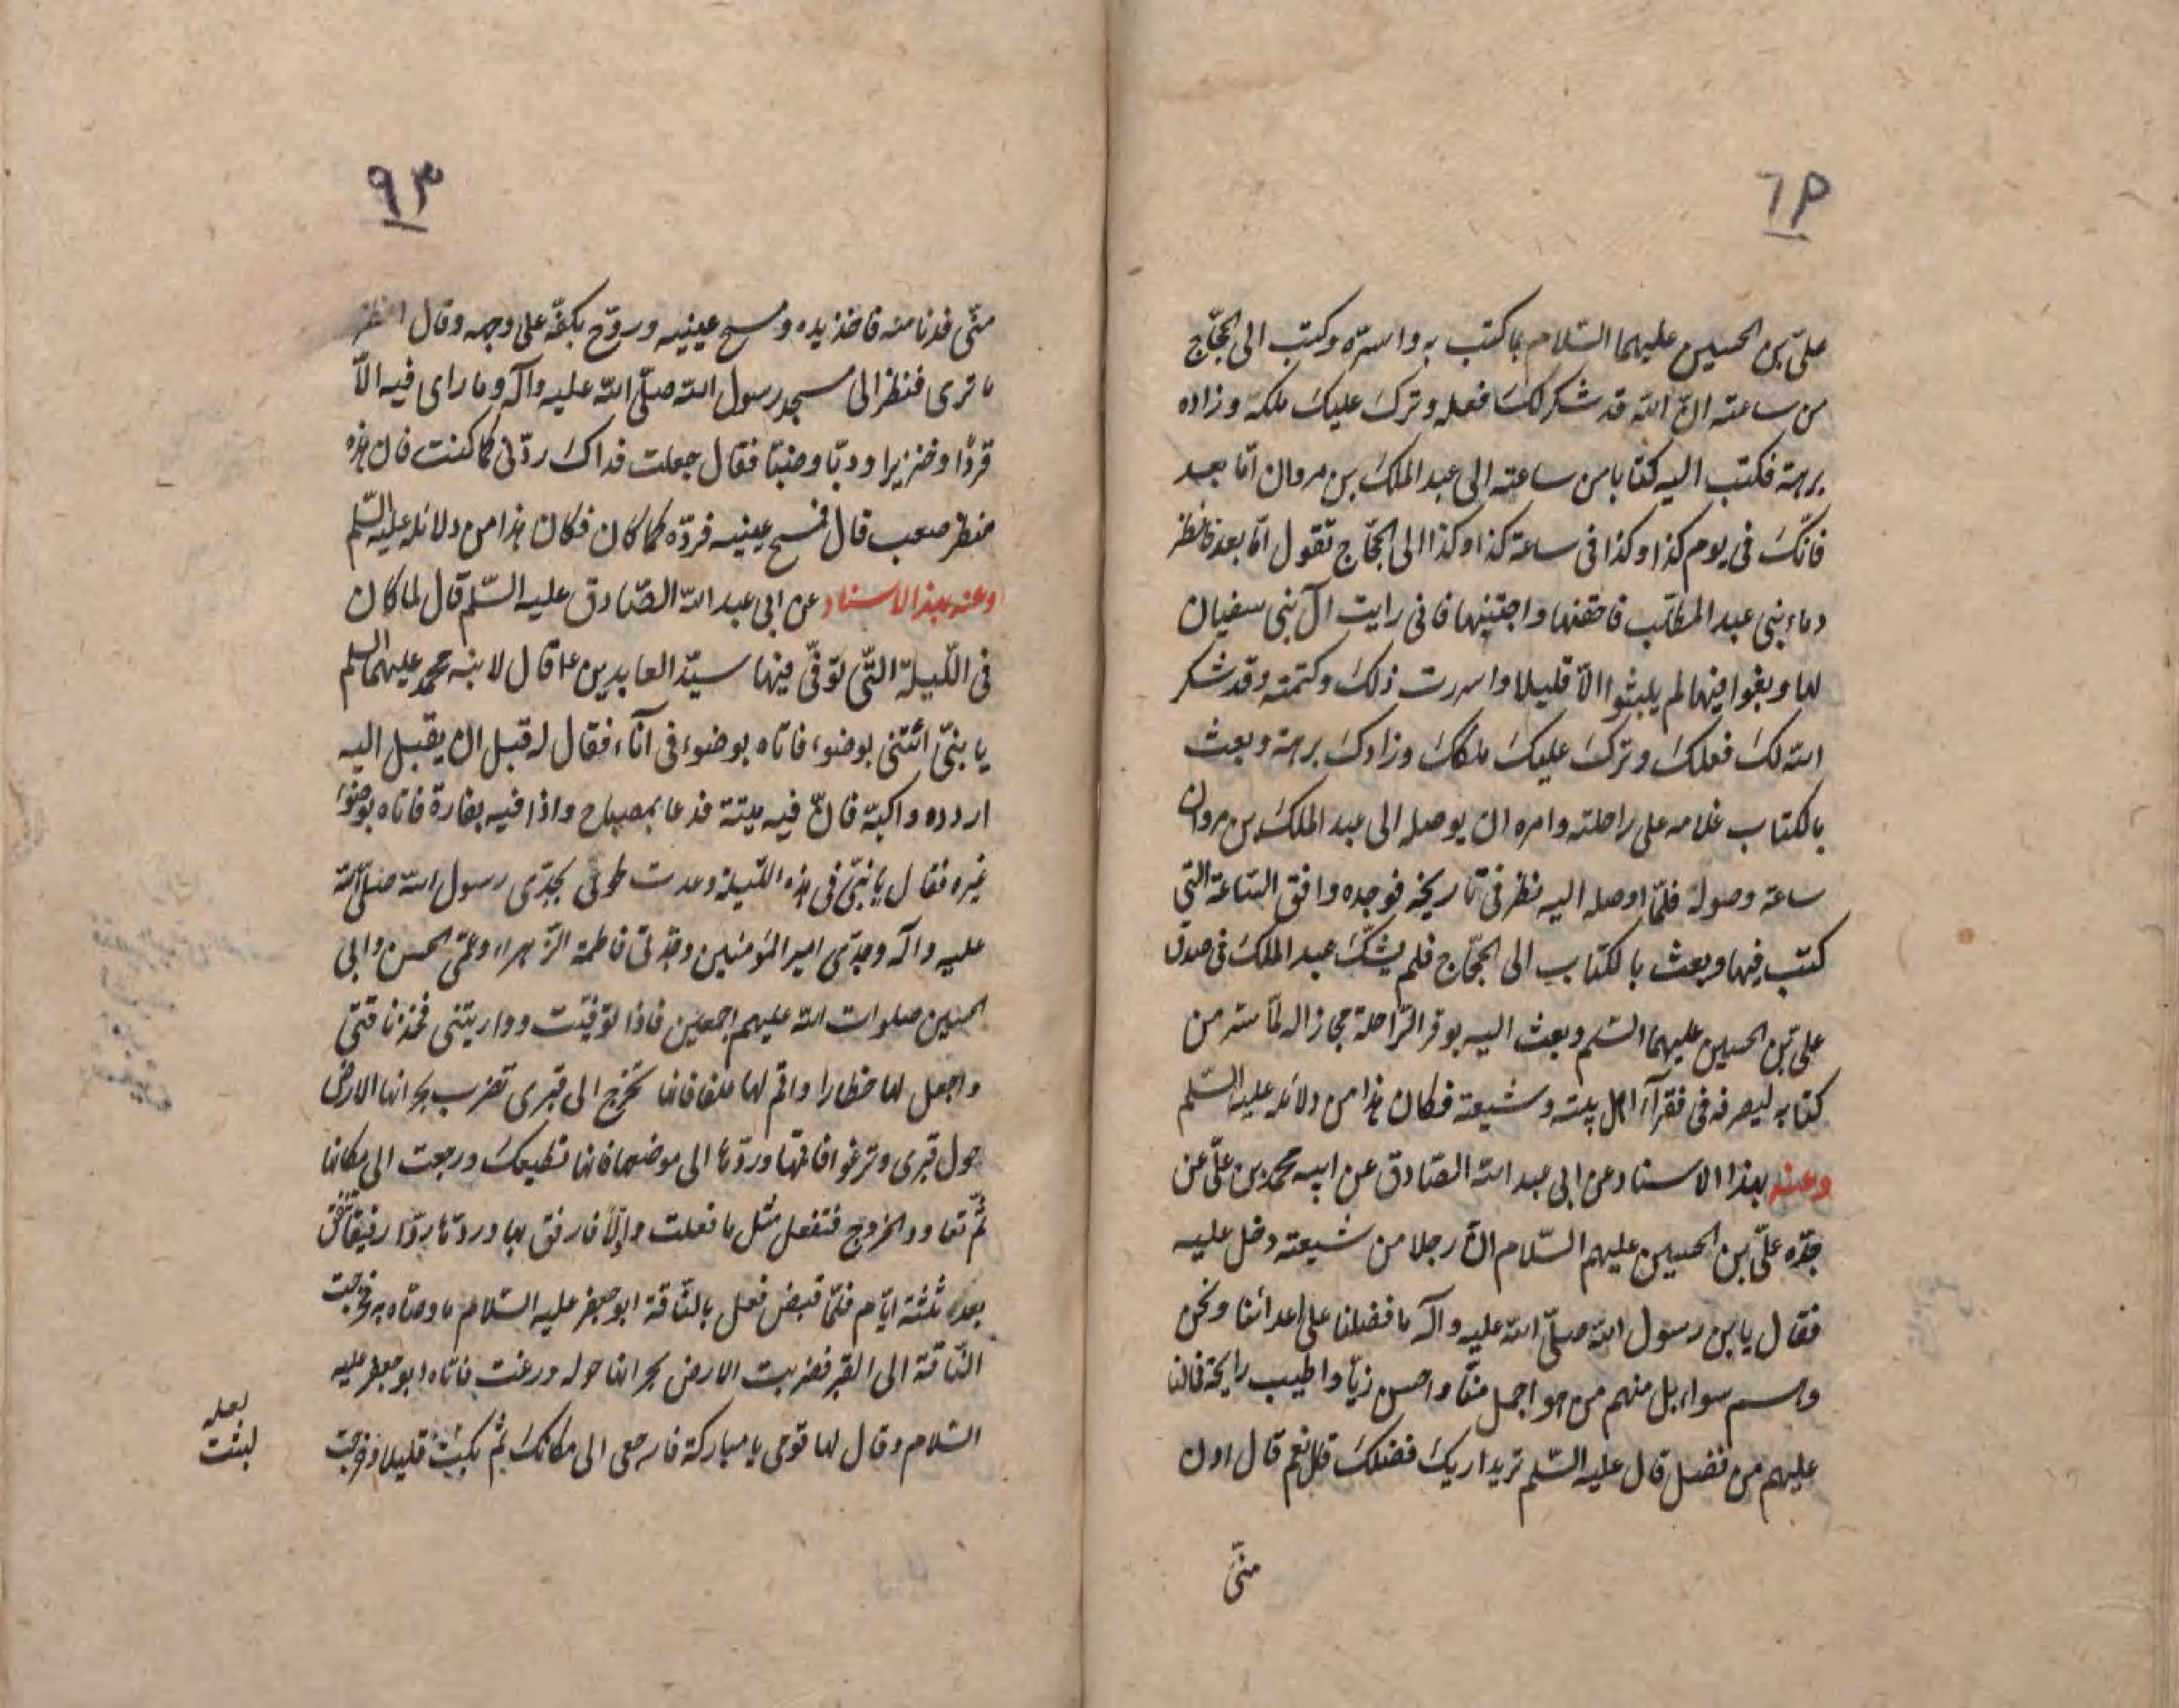 علىّ بن الحسين عليهما السّلام بما كتب به واسرّه وكتب الى الحجّاج
من ساعته انّ اللّه قد شكر لك فعله وترك عليك ملكه وزاده
برهة فكتب اليه كتابا من ساعته الى عبد الملك بن مروان امّا بعد
فانّك فى يوم كذا وكذا فى ساعة كذا وكذا الى الحجّاج تقول امّا بعد فانظر
دماء بنى عبد المطّلب فاحقنها واجتنبها فانى رايت آل بنى سفيان
لما وبغوا فيها لم يلبثوا الاّ قليلا واسررت ذلك وكتمته وقد شكر
اللّه لك فعلك وترك عليك ملكك وزادك برهة وبعث
بالكتاب غلامه على راحلته وامره ان يوصله الى عبد الملك بن مروان
ساعة وصوله فلمّا اوصله اليه نظر فى تاريخه فوجده وافق السّاعة التي
كتب فيها وبعث بالكتاب الى الحجّاج فلم يشكّ عبد الملك فى صدق
علىّ بن الحسين عليهما السّلم وبعث اليه بوقر الرّاحلة مجازاله لما سّر من
كتابه ليصرفه فى فقرآء اهل بيته وشيعته فكان هذا من دلائله عليه السّلم
وعنه بهذا الاسناد عن ابى عبد اللّه الصّادق عن ابيه محمّد بن علىّ عن
جدّه علىّ بن الحسين عليهم السّلام انّ رجلا من شيعته دخل عليه
فقال يابن رسول اللّه صلّى اللّه عليه وآله ما فضلنا على اعدائنا ونحن
وهم سواء بل منهم من هو اجمل منّا واحسن زيّا واطيب رايحة فمالنا
عليهم من فضل قال عليه السّلم تريد اريك فضلك قال نعم قال ادن
منّى
٩٣
منّى فدنا منه فاخذ يده ومسح عينيه وروّح بكفّه على وجهه وقال انظر
ما ترى فنظر الى مسجد رسول اللّه صلّى اللّه عليه وآله وما راى فيه الاّ
قردًا وخنزيرا ودبّا وضبّا فقال جعلت فداك ردّنى كما كنت فان هذه
منظر صعب قال فمسح عينيه فردّه كما كان فكان هذا من دلائله عليه السّلم
وعنه بهذا الاسناد عن ابى عبد اللّه الصّادق عليه السّلم قال لما كان
فى اللّيلة التّى توفّى فيها سيّد العابدين ع قال لابنه محمّد عليهما السلم
يا بنىّ ائتنى بوضوء فاتاه بوضوء فى آناء فقال له قبل ان يقبل اليه
اردده واكبّه فانّ فيه ميتة فدعا بمصباح واذا فيه بفارة فاتاه بوضوء
غيره فقال يا بنىّ فى هذه اللّيلة وعدت لحوقى بجدّى رسول اللّه صلّى اللّه
عليه وآله وجدّى امير المؤمنين وجدّتى فاطمة الزّهراء وعمّى الحسن وابى
الحسين صلوات اللّه عليهم اجمعين فاذا توفّيت وواريتنى فخذ ناقتى
واجعل لها خظارا واقم لها علفا فانها تخرج الى قبرى تضرب بجرانها الارض
حول قبرى وترغو افاتها وردّها الى موضعها فانها تطيعك ورجعت الى مكانها
ثمّ تعاود الخروج فتفعل مثل ما فعلت والّا فارفق بها وردّها ردّا رفيقا تنفق
بعده ثلثة ايّام فلمّا قبض فعل بالنّاقة ابو جعفر عليه السّلام ما وصّاه به فخرجت
النّاقة الى القبر فضربت الارض بجرانها حوله ورغت فاتاه ابو جعفر عليه
السّلام وقال لها قومى يا مباركة فارجعى الى مكانك ثمّ بكيت قليلا وخرجت
لعله
لبثت